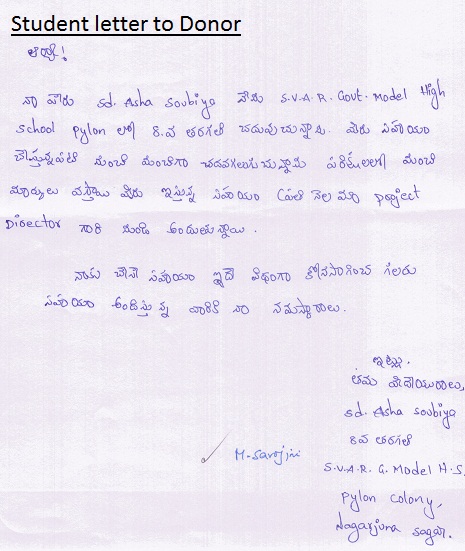 Student letter to Donor
ఆర్యా!
నా పేరు sd. Asha Soubiya నేను S.V.A.R. Govt. Model High
School pylon లో 8.వ తరగతి చదువుచున్నాను. మీరు సహాయం
చేస్తున్నపటి నుంచి మంచిగా చదవగలుగుచున్నాను పరీక్షలలో మంచి
మార్కులు వస్తాయి మీరు ఇస్తున్న సహాయం ప్రతి నెల మా project
Director గారి నుండి అందుతున్నాయి.
నాకు చేసే సహాయం ఇదే విధంగా కొనసాగించ గలరు
సహాయం అందిస్తున్న వారికి నా నమస్కారాలు.
ఇట్లు.
తమ విధేయురాలు,
sd. Asha Soubiya
8వ తరగతి
M. Sarojini
S.V.A.R. G. Model H.S,
Pylon Colony,
Nagarjuna sagar.